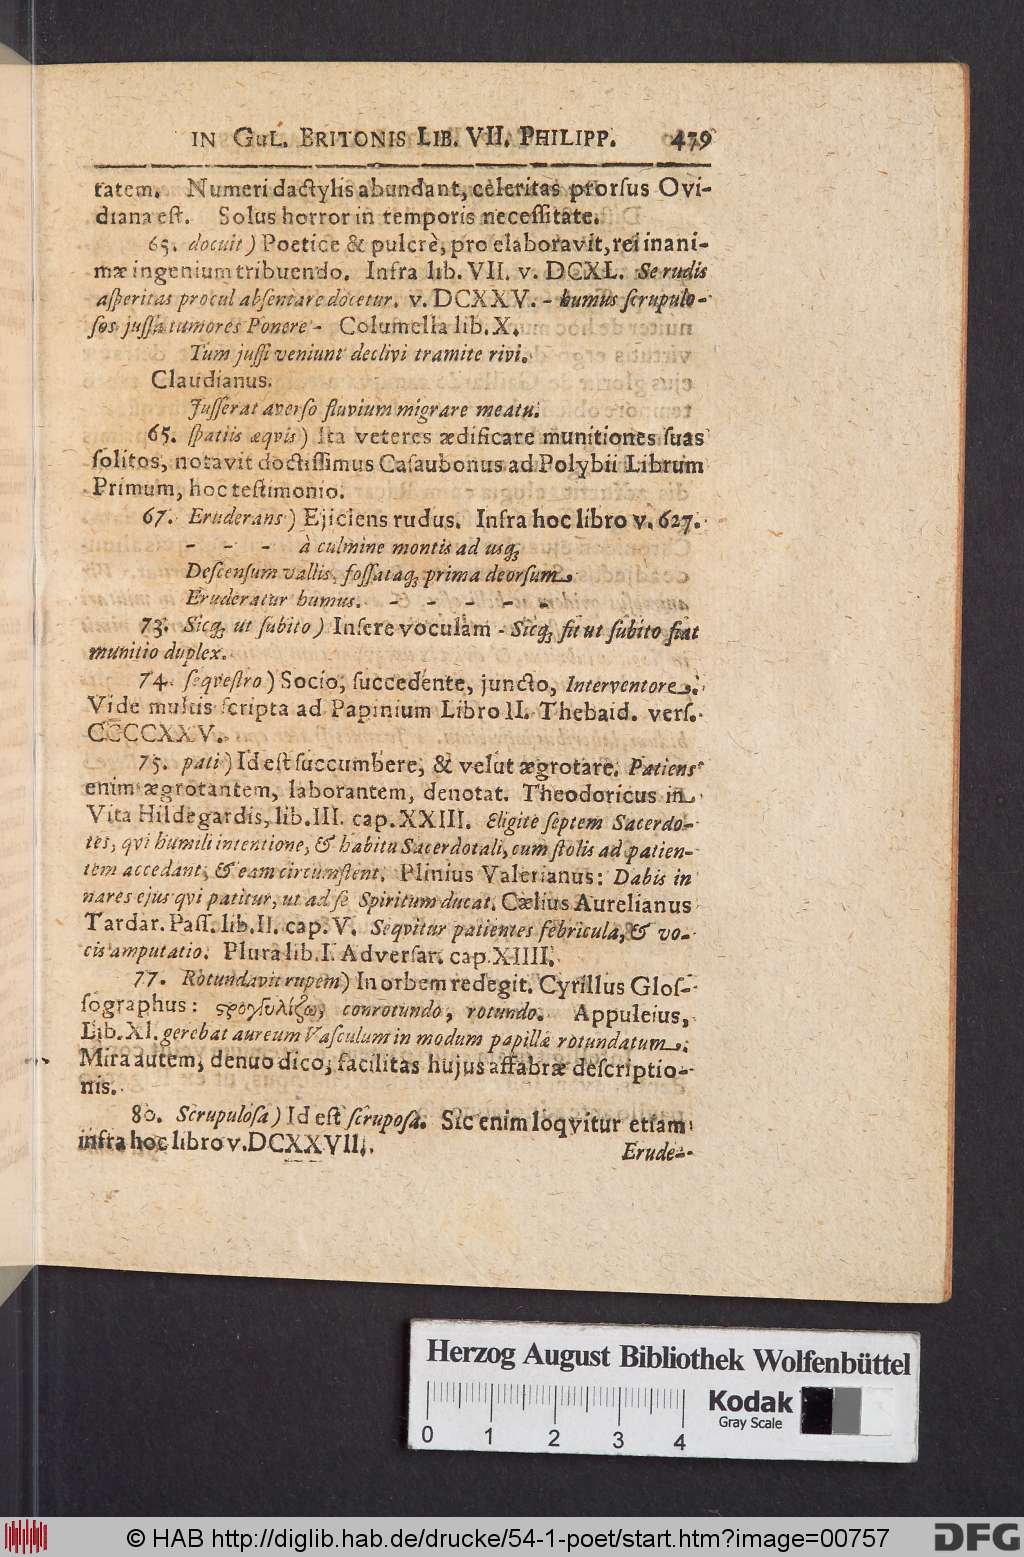 IN GUL. BRITONIS LIB. VII. PHILIPP. 479
tatem. Numeri dactylis abundant, celeritas prorsus Ovi-
diana est. Solus horror in temporis necessitate.
65. docuit) Poetice & pulcrè, pro elaboravit, rei inani-
mæ ingenium tribuendo. Infra lib. VII. v. DCXL. Se rudis
asperitas procul absentare docetur. v. DCXXV. - humus scrupulo-
sos jussa tumores Ponere - Columella lib. X.
Tum jussi veniunt declivi tramite rivi.
Claudianus.
Jusserat averso fluvium migrare meatu.
65. spatiis æqvis) Ita veteres ædificare munitiones suas
solitos, notavit doctissimus Casaubonus ad Polybii Librum
Primum, hoc testimonio.
67. Eruderans) Ejiciens rudus. Infra hoc libro v. 627.
- - - à culmine montis ad usq;
Descensum vallis, fossataq; prima deorsum
Eruderatur humus. - - - - -
73. Sicq; ut subito) Insere voculam - Sicq; fit ut subito fiat
munitio duplex.
74. seqvestro) Socio, succedente, juncto, Interventore.
Vide multis scripta ad Papinium Libro II. Thebaid. vers.
CCCCXXV.
75. pati) Id est succumbere, & velut ægrotare. Patiens
enim ægrotantem, laborantem, denotat. Theodoricus in
Vita Hildegardis, lib. III. cap. XXIII. Eligite septem Sacerdo-
tes, qvi humili intentione, & habitu Sacerdotali, cum stolis ad patien-
tem accedant, & eam circumstent. Plinius Valerianus: Dabis in
nares ejus qvi patitur, ut ad se Spiritum ducat. Cælius Aurelianus
Tardar. Pass. lib. II. cap. V. Seqvitur patientes febricula, & vo-
cis amputatio. Plura lib. I. Adversar. cap. XIIII.
77. Rotundavit rupem) In orbem redegit. Cyrillus Glos-
sographus: ςρογγυλίζω, conrotundo, rotundo. Appuleius,
Lib. XI. gerebat aureum Vasculum in modum papillæ rotundatum.
Mira autem, denuo dico, facilitas hujus affabræ descriptio-
nis.
80. Scrupulosa) Id est scruposa. Sic enim loqvitur etiam
infra hoc libro v. DCXXVII.
Erude-
Herzog August Bibliothek Wolfenbüttel
Kodak
Gray Scale
0 1 2 3 4
© HAB http://diglib.hab.de/drucke/54-1-poet/start.htm?image=00757
DFG